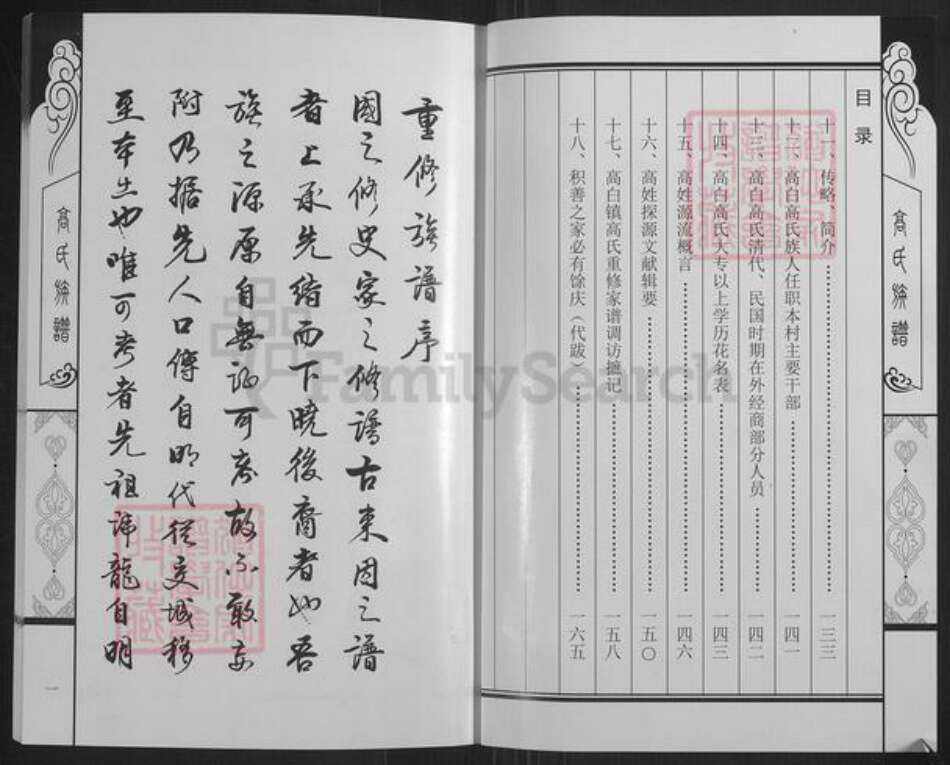 高氏族譜
目录
十一、传略、简介 一三三
十二、高白高氏族人任职本村主要干部 一四一
十三、高白高氏清代、民国时期在外经商部分人员 一四二
十四、高白高氏大专以上学历花名表 一四三
十五、高姓源流概言 一四六
十六、高姓探源文献辑要 一五〇
十七、高白镇高氏重修家谱调访摭记 一五八
十八、积善之家必有馀庆（代跋） 一六五
重修族譜序
國之修史家之修譜古来因之譜
者上承先緒而下曉後裔者也吾
族之源原自無證可考故不敢妄
附乃据先人口傳自明代從交城移
至本土也唯可考者先祖諱龍自明
高氏族譜
一
FamilySearch